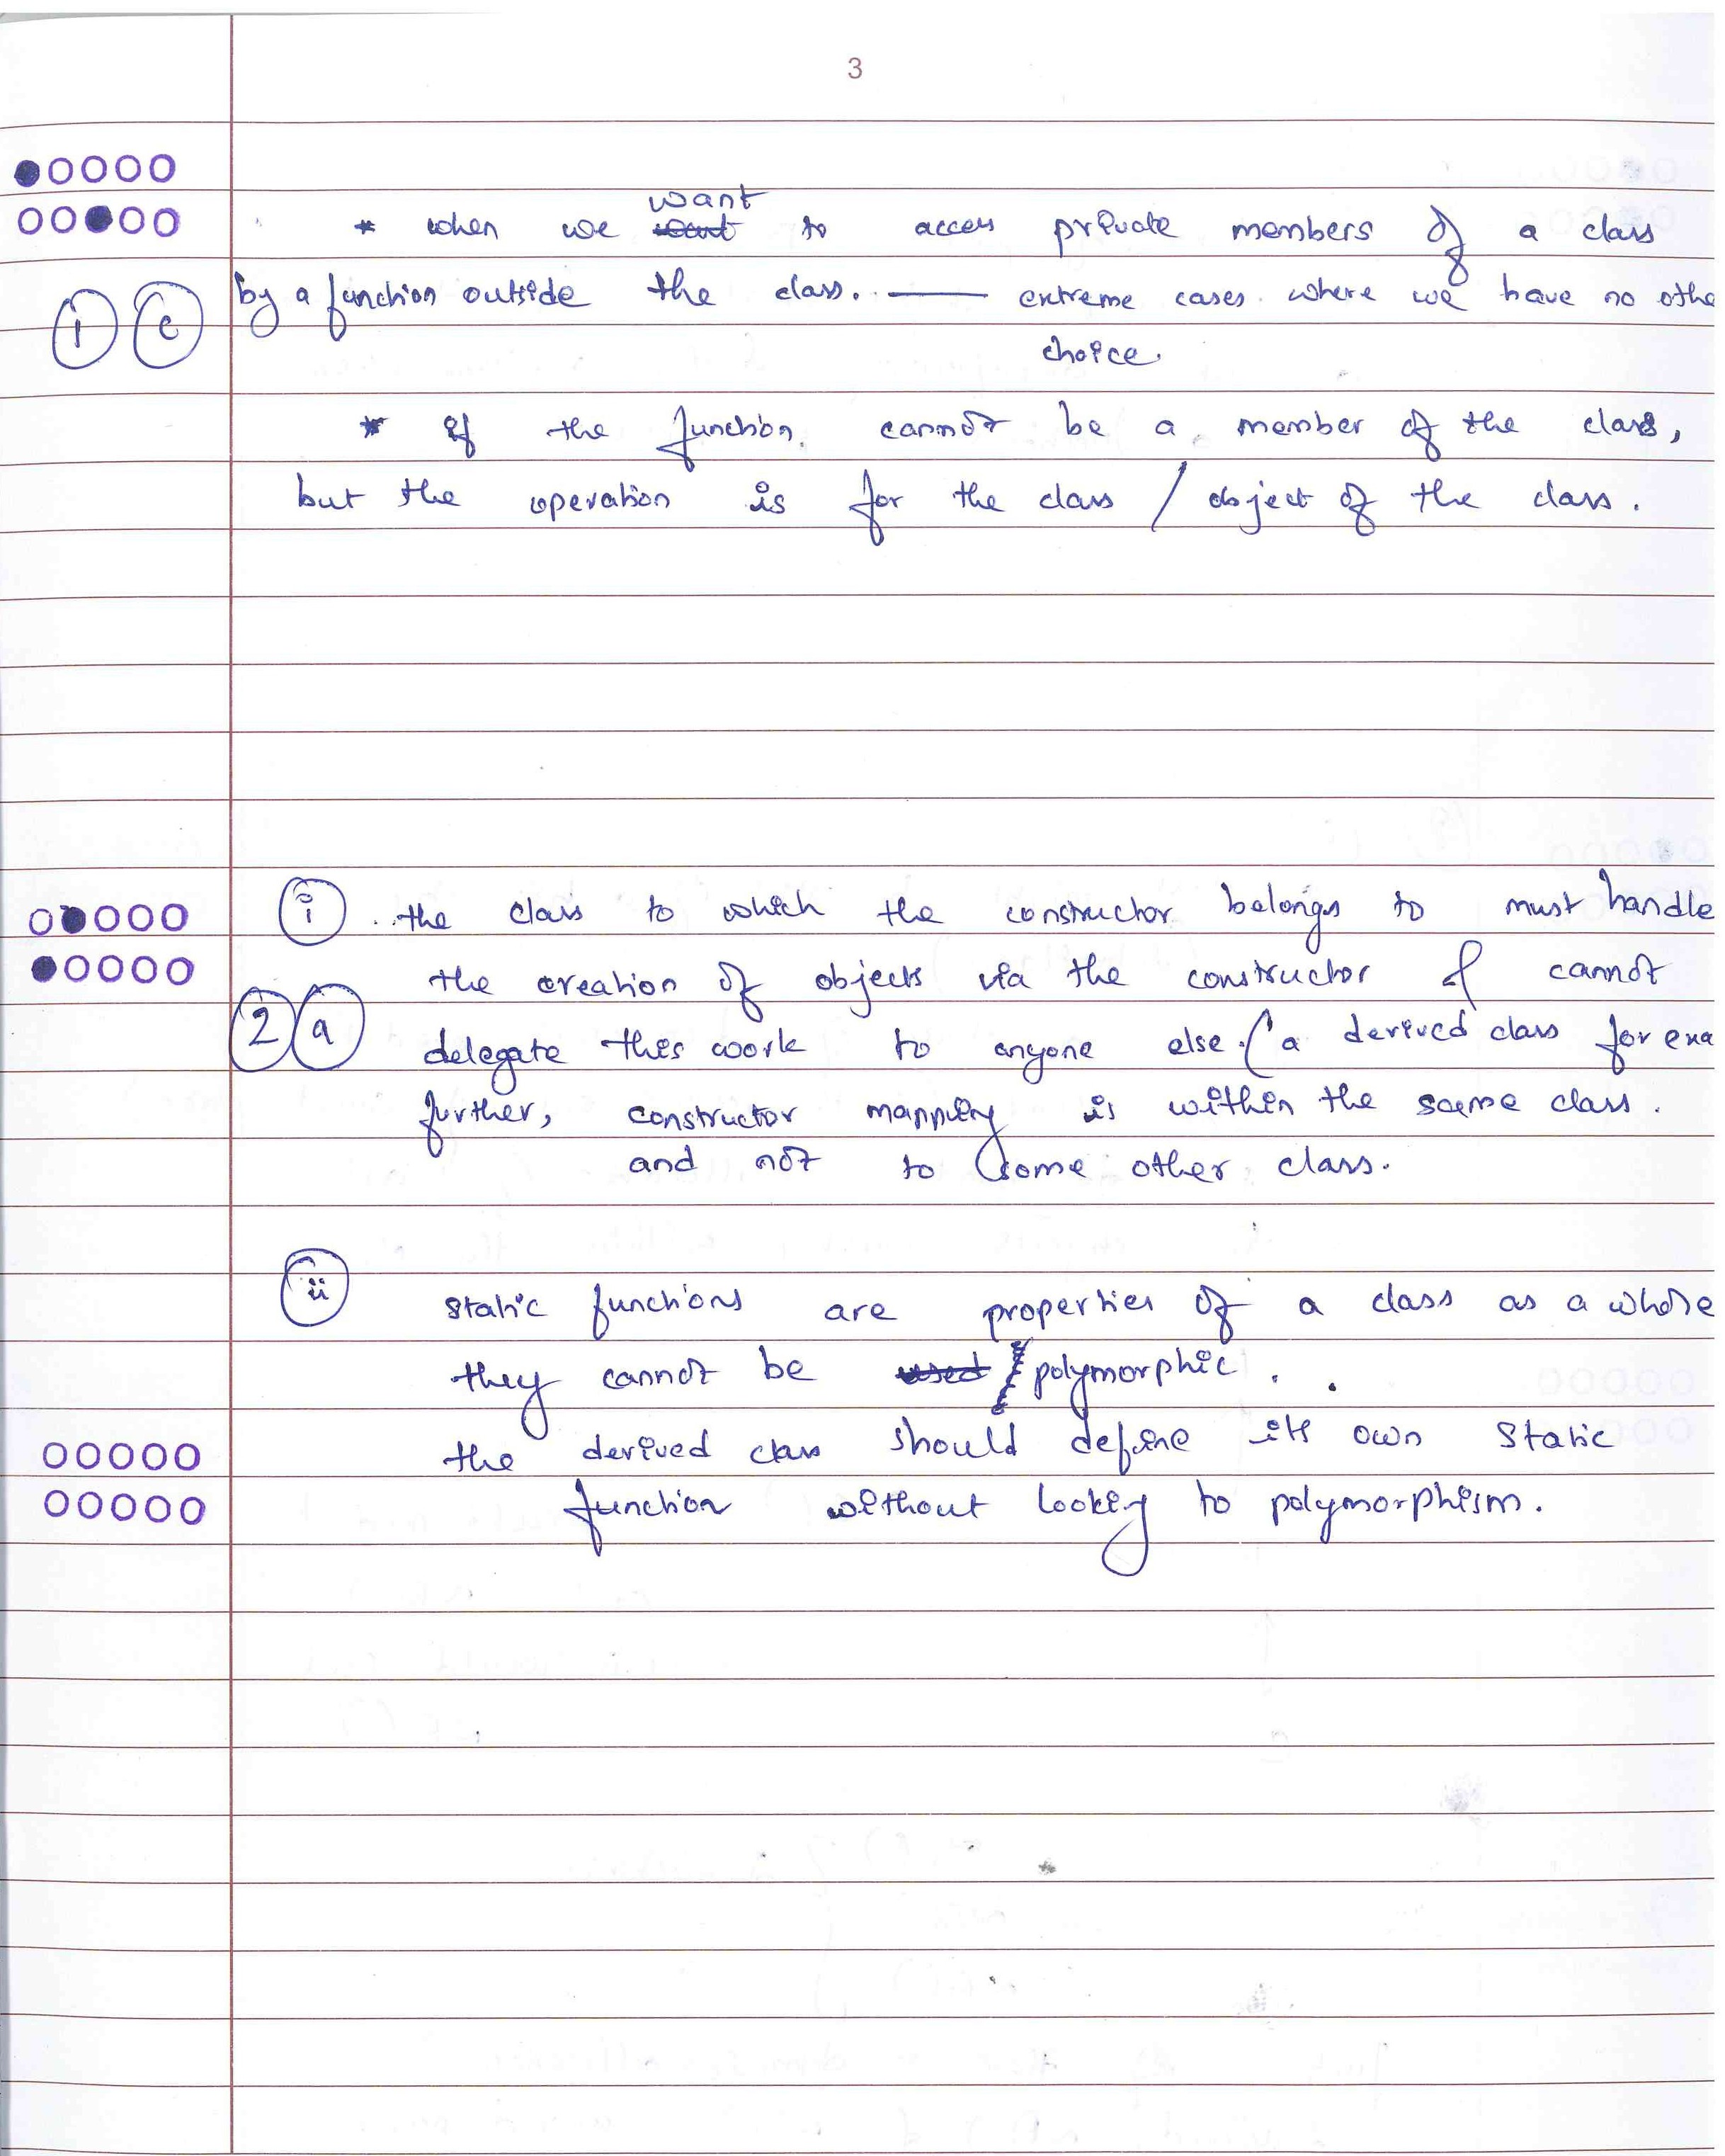 3
want
* when we to access private members of a class
1 c by a function outside the class. — extreme cases where we have no othe
choice.
* if the function cannot be a member of the class,
but the operation is for the class / object of the class.
i the class to which the constructor belongs to must handle
the creation of objects via the constructor & cannot
2 a delegate this work to anyone else. (a derived class for exa
further, constructor mapping is within the same class.
and not to some other class.
ii static functions are properties of a class as a whole
they cannot be used polymorphic.
the derived class should define its own static
function without looking to polymorphism.